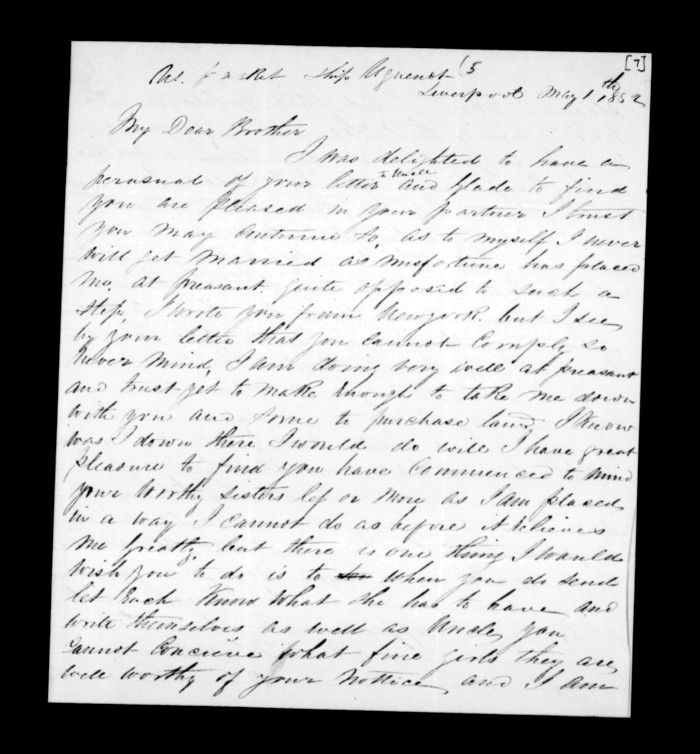 [7]
Ship Uguenot (5
Liverpool May 1th 1852
My Dear Brother
I was delighted to have a
perusal of your letter to Uncle and Glade to find
you are pleased in your partner I trust
you may continue so, as to myself I never
will get married as misfortune has placed
me, at pleasant quite opposed to such a
step, I wrote you from Newyork. but I see
by your letter that you cannot comply so
never mind, I am doing very well at pleasant
and trust yet to make enough to take me down
with you and some to purchase land, I know
was I down there I would do well I have great
pleasure to find you have commenced to mind
your worthy sisters less or more as I am placed
in a way I cannot do as before it relieves
me greatly, but there is one thing I would
wish you to do is to when you do send
let Each Know what she has to have and
write themselves as well as Uncle, you
cannot Concieve what fine girls they are,
well worthy of your nottice, and I am